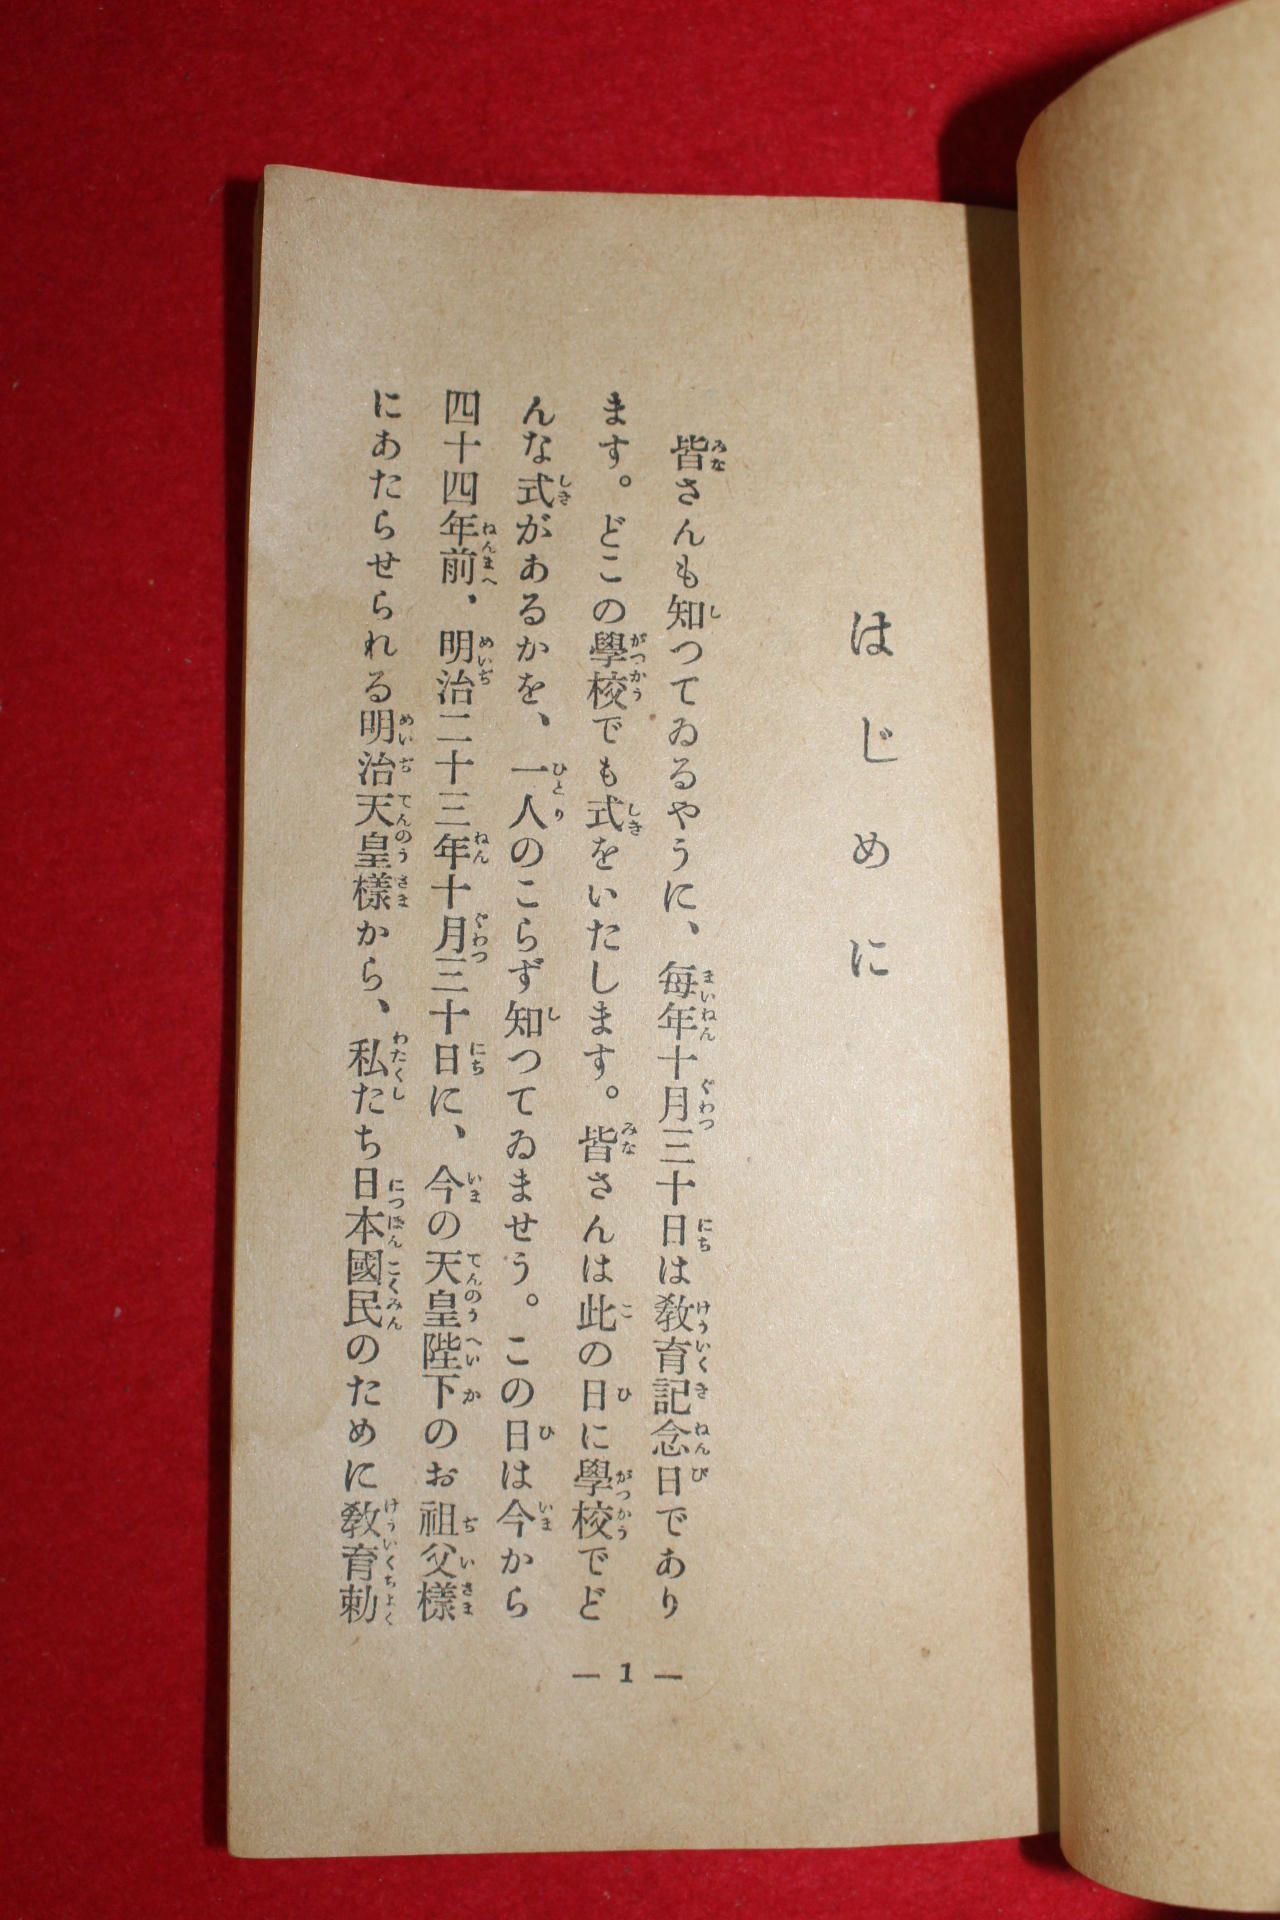 はじめに
皆さんも知つてゐるやうに、每年十月三十日は敎育記念日であり
ます。どこの學校でも式をいたします。皆さんは此の日に學校でど
んな式があるかを、一人のこらず知つてゐませう。この日は今から
四十四年前、明治二十三年十月三十日に、今の天皇陛下のお祖父樣
にあたらせられる明治天皇樣から、私たち日本國民のために敎育勅
— 1 —